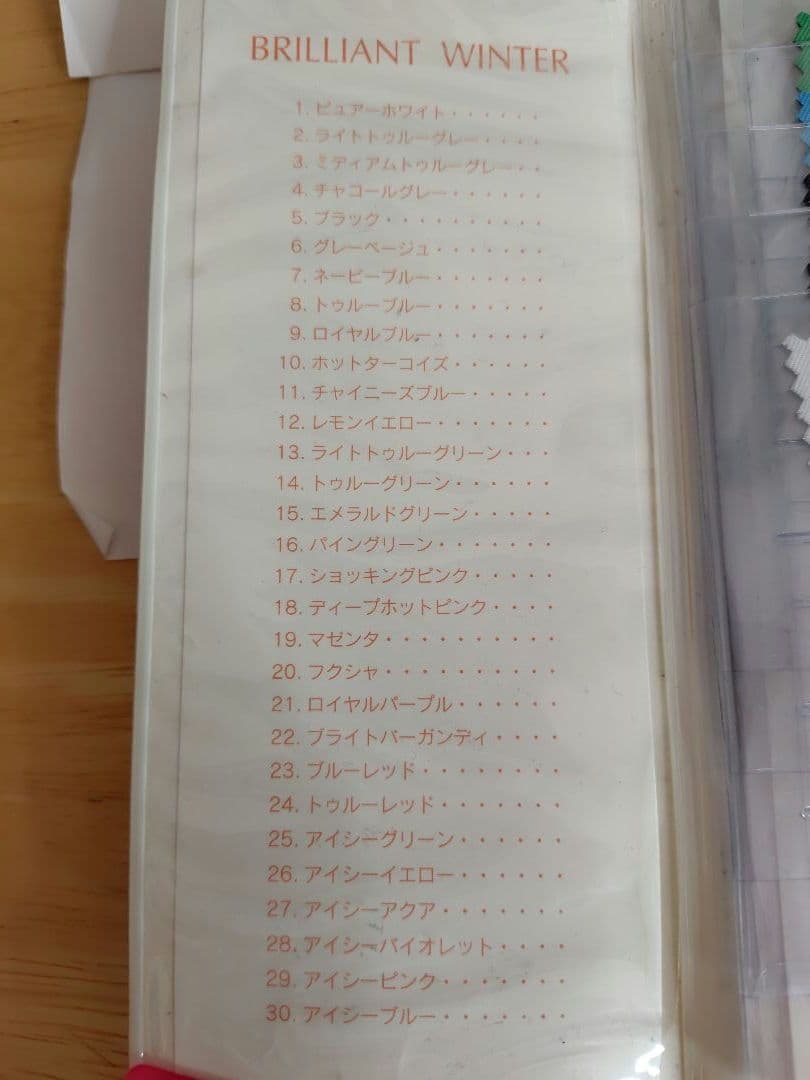 BRILLIANT WINTER
1. ピュアーホワイト・・・・・・
2. ライトトゥルーグレー・・・・
3. ミディアムトゥルーグレー・・
4. チャコールグレー・・・・・・
5. ブラック・・・・・・・・・・
6. グレーベージュ・・・・・・・
7. ネービーブルー・・・・・・・
8. トゥルーブルー・・・・・・・
9. ロイヤルブルー・・・・・・・
10. ホットターコイズ・・・・・・
11. チャイニーズブルー・・・・・
12. レモンイエロー・・・・・・・
13. ライトトゥルーグリーン・・・
14. トゥルーグリーン・・・・・・
15. エメラルドグリーン・・・・・
16. パイングリーン・・・・・・・
17. ショッキングピンク・・・・・
18. ディープホットピンク・・・・
19. マゼンタ・・・・・・・・・・
20. フクシャ・・・・・・・・・・
21. ロイヤルパープル・・・・・・
22. ブライトバーガンディ・・・・
23. ブルーレッド・・・・・・・・
24. トゥルーレッド・・・・・・・
25. アイシーグリーン・・・・・・
26. アイシーイエロー・・・・・・
27. アイシーアクア・・・・・・・
28. アイシーバイオレット・・・・
29. アイシーピンク・・・・・・・
30. アイシーブルー・・・・・・・